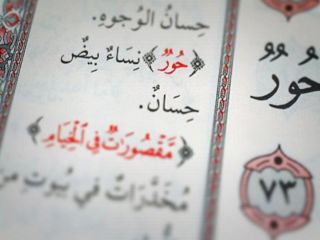 حِسَانُ الوُجوهِ.
﴿حُورٌ﴾ نِسَاءٌ بِيضٌ
حِسَانٌ.
﴿مَّقْصُورَاتٌ فِي الْخِيَامِ﴾
مُخَدَّرَاتٌ في بُيوتٍ من
حُورٌ
٧٣